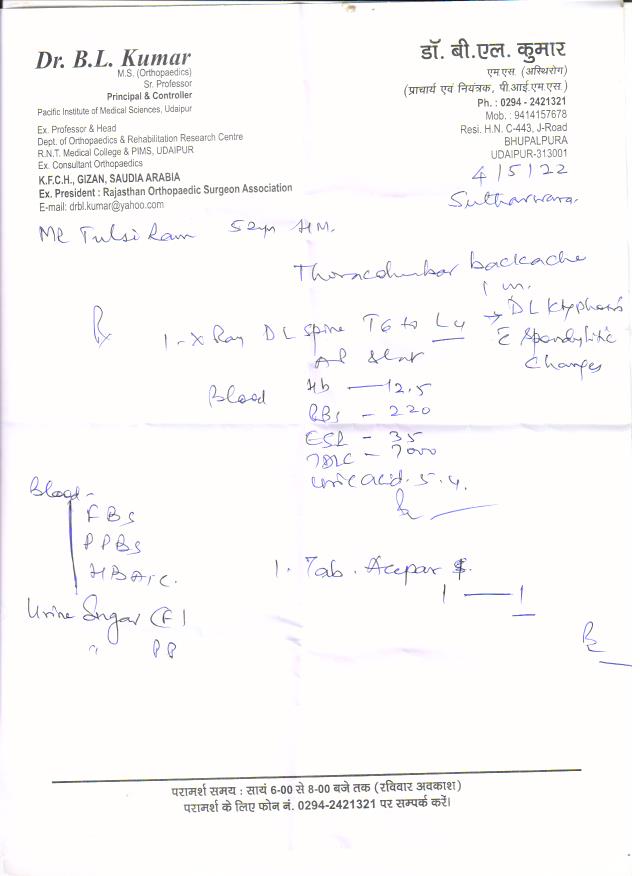 Dr. B.L. Kumar
M.S. (Orthopaedics)
Sr. Professor
Principal & Controller
Pacific Institute of Medical Sciences, Udaipur
Ex. Professor & Head
Dept. of Orthopaedics & Rehabilitation Research Centre
R.N.T. Medical College & PIMS, UDAIPUR
Ex. Consultant Orthopaedics
K.F.C.H., GIZAN, SAUDIA ARABIA
Ex. President : Rajasthan Orthopaedic Surgeon Association
E-mail: drbl.kumar@yahoo.com
डॉ. बी.एल. कुमार
एम.एस. (अस्थिरोग)
(प्राचार्य एवं नियंत्रक, पी.आई.एम.एस.)
Ph. : 0294 - 2421321
Mob. : 9414157678
Resi. H.N. C-443, J-Road
BHUPALPURA
UDAIPUR-313001
4/5/22
Sutharwara.
Mr Tulsi Ram 52yr HM.
Thoracolumbar backache
1 m.
Rx
1 - X Ray DL spine T6 to L4
→ DL Kyphosis
c̄ Spondylitic
Changes
AP & Lat
Blood Hb — 12.5
RBS - 220
ESR - 35
TDLC - 7000
Uric acid. 5.4.
Blood -
FBS
PPBS
HBA1C.
Urine Sugar (F)
" PP
1. Tab. Acepar
1 — 1
परामर्श समय : सायं 6-00 से 8-00 बजे तक (रविवार अवकाश)
परामर्श के लिए फोन नं. 0294-2421321 पर सम्पर्क करें।